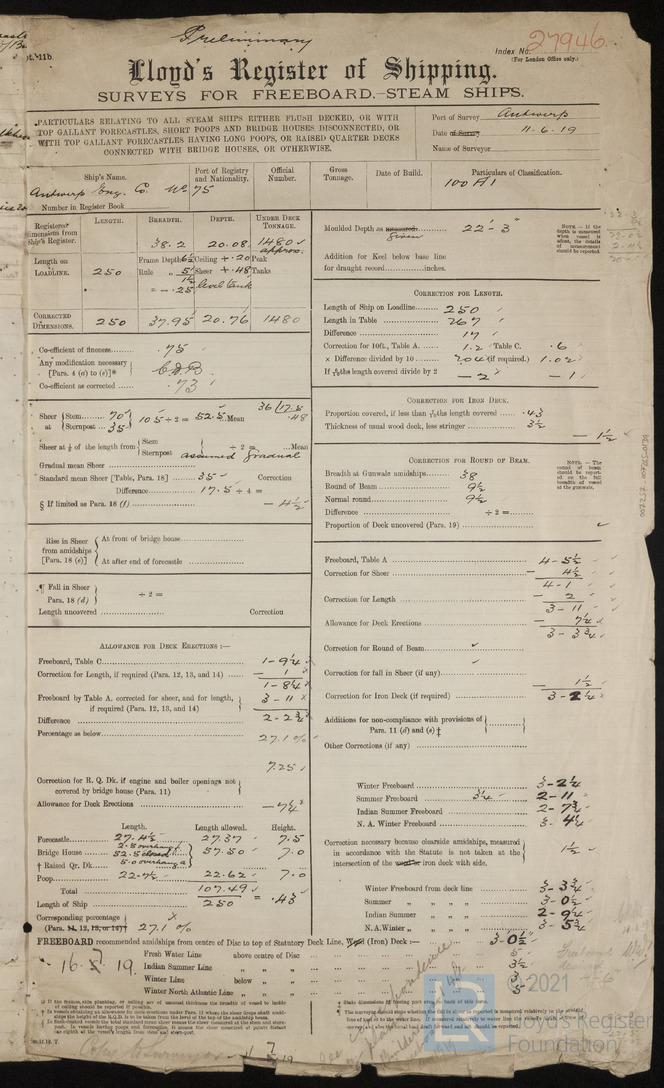 Preliminary
Index No. 27946.
(For London Office only.)
Lloyd's Register of Shipping.
SURVEYS FOR FREEBOARD.—STEAM SHIPS.
PARTICULARS RELATING TO ALL STEAM SHIPS EITHER FLUSH DECKED, OR WITH
TOP GALLANT FORECASTLES, SHORT POOPS AND BRIDGE HOUSES DISCONNECTED, OR
WITH TOP GALLANT FORECASTLES HAVING LONG POOPS, OR RAISED QUARTER DECKS
CONNECTED WITH BRIDGE HOUSES, OR OTHERWISE.
Port of Survey Antwerp
Date of Survey 11-6-19
Name of Surveyor
Ship's Name. Port of Registry and Nationality. Official Number. Gross Tonnage. Date of Build. Particulars of Classification.
Antwerp Eng. Co. No 75
100 A1
Number in Register Book
LENGTH. BREADTH. DEPTH. UNDER DECK TONNAGE.
Registered dimensions from Ship's Register. 38.2 20.08 1480 approx.
Length on LOADLINE. 250 Frame Depth 6½ Ceiling + .20 Peak
Rule " 5 Sheer + .48 Tanks
= - .25 level tank
CORRECTED DIMENSIONS. 250 37.95 20.76 1480
Co-efficient of fineness 75
Any modification necessary [Para. 4 (a) to (e)]*
Co-efficient as corrected .73
Sheer at Stem 70 Sternpost 35 105 ÷ 2 = 52.5 Mean
Sheer at ⅛ of the length from Stem Sternpost ÷ 2 = Mean
assumed gradual
Gradual mean Sheer
Standard mean Sheer [Table, Para. 18] 35 Correction
Difference 17.5 ÷ 4 =
§ If limited as Para. 18 (f) — 4½
Rise in Sheer from amidships [Para. 18 (e)] At front of bridge house
At after end of forecastle
¶ Fall in Sheer Para. 18 (d) ÷ 2 =
Length uncovered Correction
ALLOWANCE FOR DECK ERECTIONS :—
Freeboard, Table C 1-9¼
Correction for Length, if required (Para. 12, 13, and 14) — 1
1-8¼
Freeboard by Table A. corrected for sheer, and for length, if required (Para. 12, 13, and 14) 3-11
Difference 2-2¾
Percentage as below 27.1%
7.25
Correction for R. Q. Dk. if engine and boiler openings not covered by bridge house (Para. 11)
Allowance for Deck Erections —7¼
Length. Length allowed. Height.
Forecastle 27.4½ 27.37 7.5
Bridge House 2.5 overhang 52.5 closed 5.0 overhang 57.50 7.0
† Raised Qr. Dk.
Poop 22.7½ 22.62 7.0
Total 107.49
Length of Ship 250 = .43
Corresponding percentage (Para. 11, 12, 13, or 14) 27.1%
Moulded Depth as measured given 22'-3"
Addition for Keel below base line for draught record inches.
CORRECTION FOR LENGTH.
Length of Ship on Loadline 250
Length in Table 267
Difference 17
Correction for 10ft., Table A. 1.2 Table C. .6
× Difference divided by 10 2.04 (if required.) 1.02
If 6/10ths length covered divide by 2 — 2 — 1
CORRECTION FOR IRON DECK.
Proportion covered, if less than 7/10ths length covered .43
Thickness of usual wood deck, less stringer 3½
— 1½
CORRECTION FOR ROUND OF BEAM.
Breadth at Gunwale amidships 38
Round of Beam 9½
Normal round 9½
Difference ÷ 2 =
Proportion of Deck uncovered (Para. 19)
Freeboard, Table A 4-5½
Correction for Sheer — 4½
4-1
Correction for Length — 2
3-11
Allowance for Deck Erections — 7¼
3-3¾
Correction for Round of Beam
Correction for fall in Sheer (if any)
Correction for Iron Deck (if required) — 1½
3-2¼
Additions for non-compliance with provisions of Para. 11 (d) and (e) ‡
Other Corrections (if any)
Winter Freeboard 3-2¼
Summer Freeboard 3¼ 2-11
Indian Summer Freeboard 2-7¾
N. A. Winter Freeboard 3-4¼
Correction necessary because clearside amidships, measured in accordance with the Statute is not taken at the intersection of the wood or iron deck with side. 1½
Winter Freeboard from deck line 3-3¾
Summer " " " 3-0½
Indian Summer " " " 2-9¼
N.A. Winter " " " 3-5¾
FREEBOARD recommended amidships from centre of Disc to top of Statutory Deck Line, Wood (Iron) Deck :— 3-0½
Fresh Water Line above centre of Disc 5
Indian Summer Line " " 3¼
Winter Line below " "
Winter North Atlantic Line " "
© 2021
Lloyd's Register
Foundation